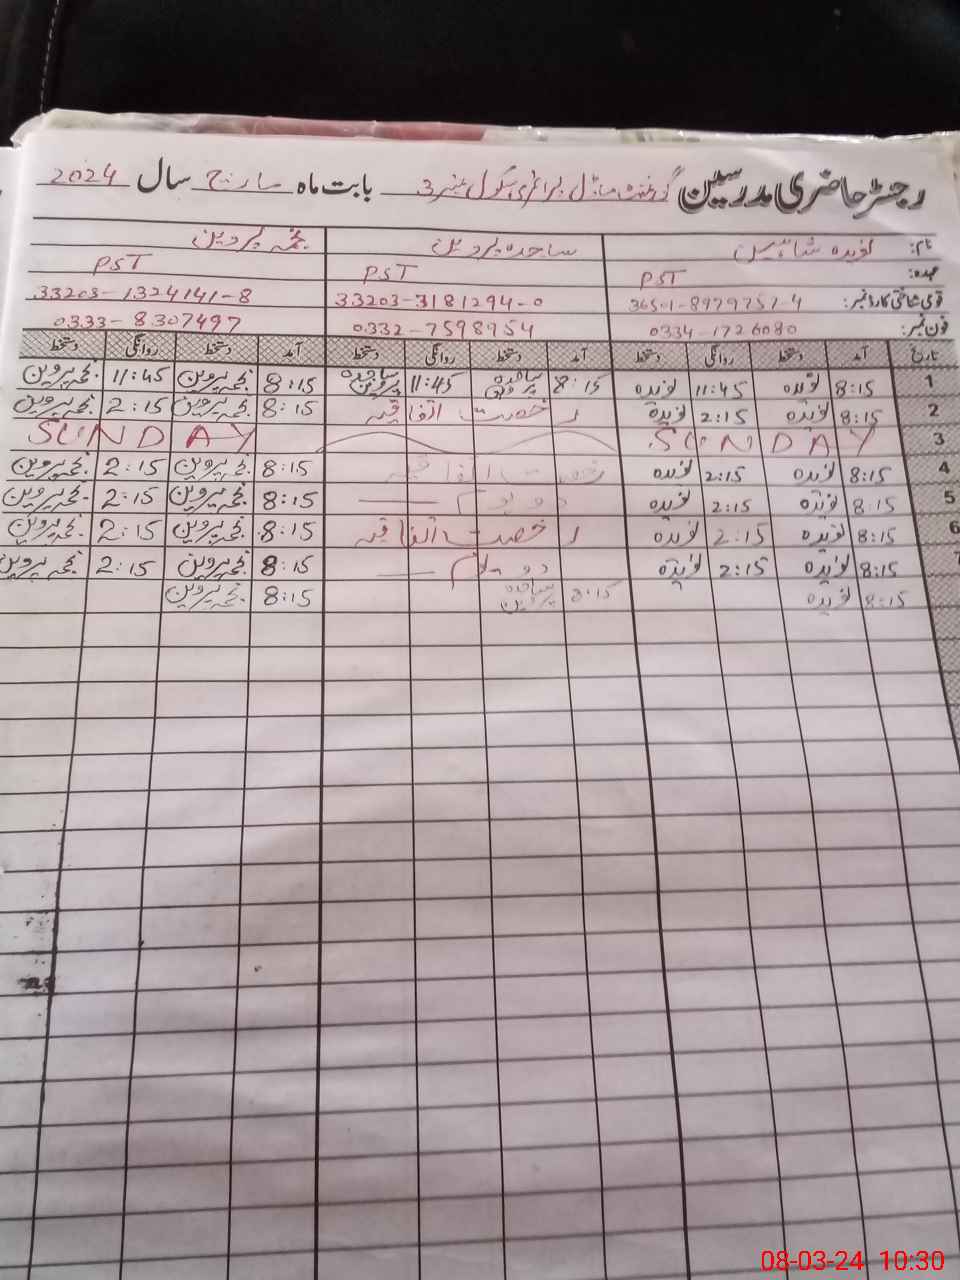 رجسٹر حاضری مدرسین گورنمنٹ ماڈل پرائمری سکول نمبر 3 بابت ماہ مارچ سال 2024
نام: نویدہ شاہین ساجدہ پروین نجمہ پروین
عہدہ: PST PST PST
قومی شناختی کارڈ نمبر: 36501-8979757-4 33203-3181294-0 33203-1324141-8
فون نمبر: 0334-1726080 0332-7598954 0333-8307497
تاریخ آمد دستخط روانگی دستخط آمد دستخط روانگی دستخط آمد دستخط روانگی دستخط
1 8:15 نویدہ 11:45 نویدہ 8:15 ساجدہ پروین 11:45 ساجدہ پروین 8:15 نجمہ پروین 11:45 نجمہ پروین
2 8:15 نویدہ 2:15 نویدہ رخصت اتفاقیہ 8:15 نجمہ پروین 2:15 نجمہ پروین
3 SUNDAY SUNDAY
4 8:15 نویدہ 2:15 نویدہ رخصت اتفاقیہ 8:15 نجمہ پروین 2:15 نجمہ پروین
5 8:15 نویدہ 2:15 نویدہ دو یوم 8:15 نجمہ پروین 2:15 نجمہ پروین
6 8:15 نویدہ 2:15 نویدہ رخصت اتفاقیہ 8:15 نجمہ پروین 2:15 نجمہ پروین
7 8:15 نویدہ 2:15 نویدہ دو یوم 8:15 نجمہ پروین 2:15 نجمہ پروین
8:15 نویدہ 8:15 ساجدہ پروین 8:15 نجمہ پروین
08-03-24 10:30